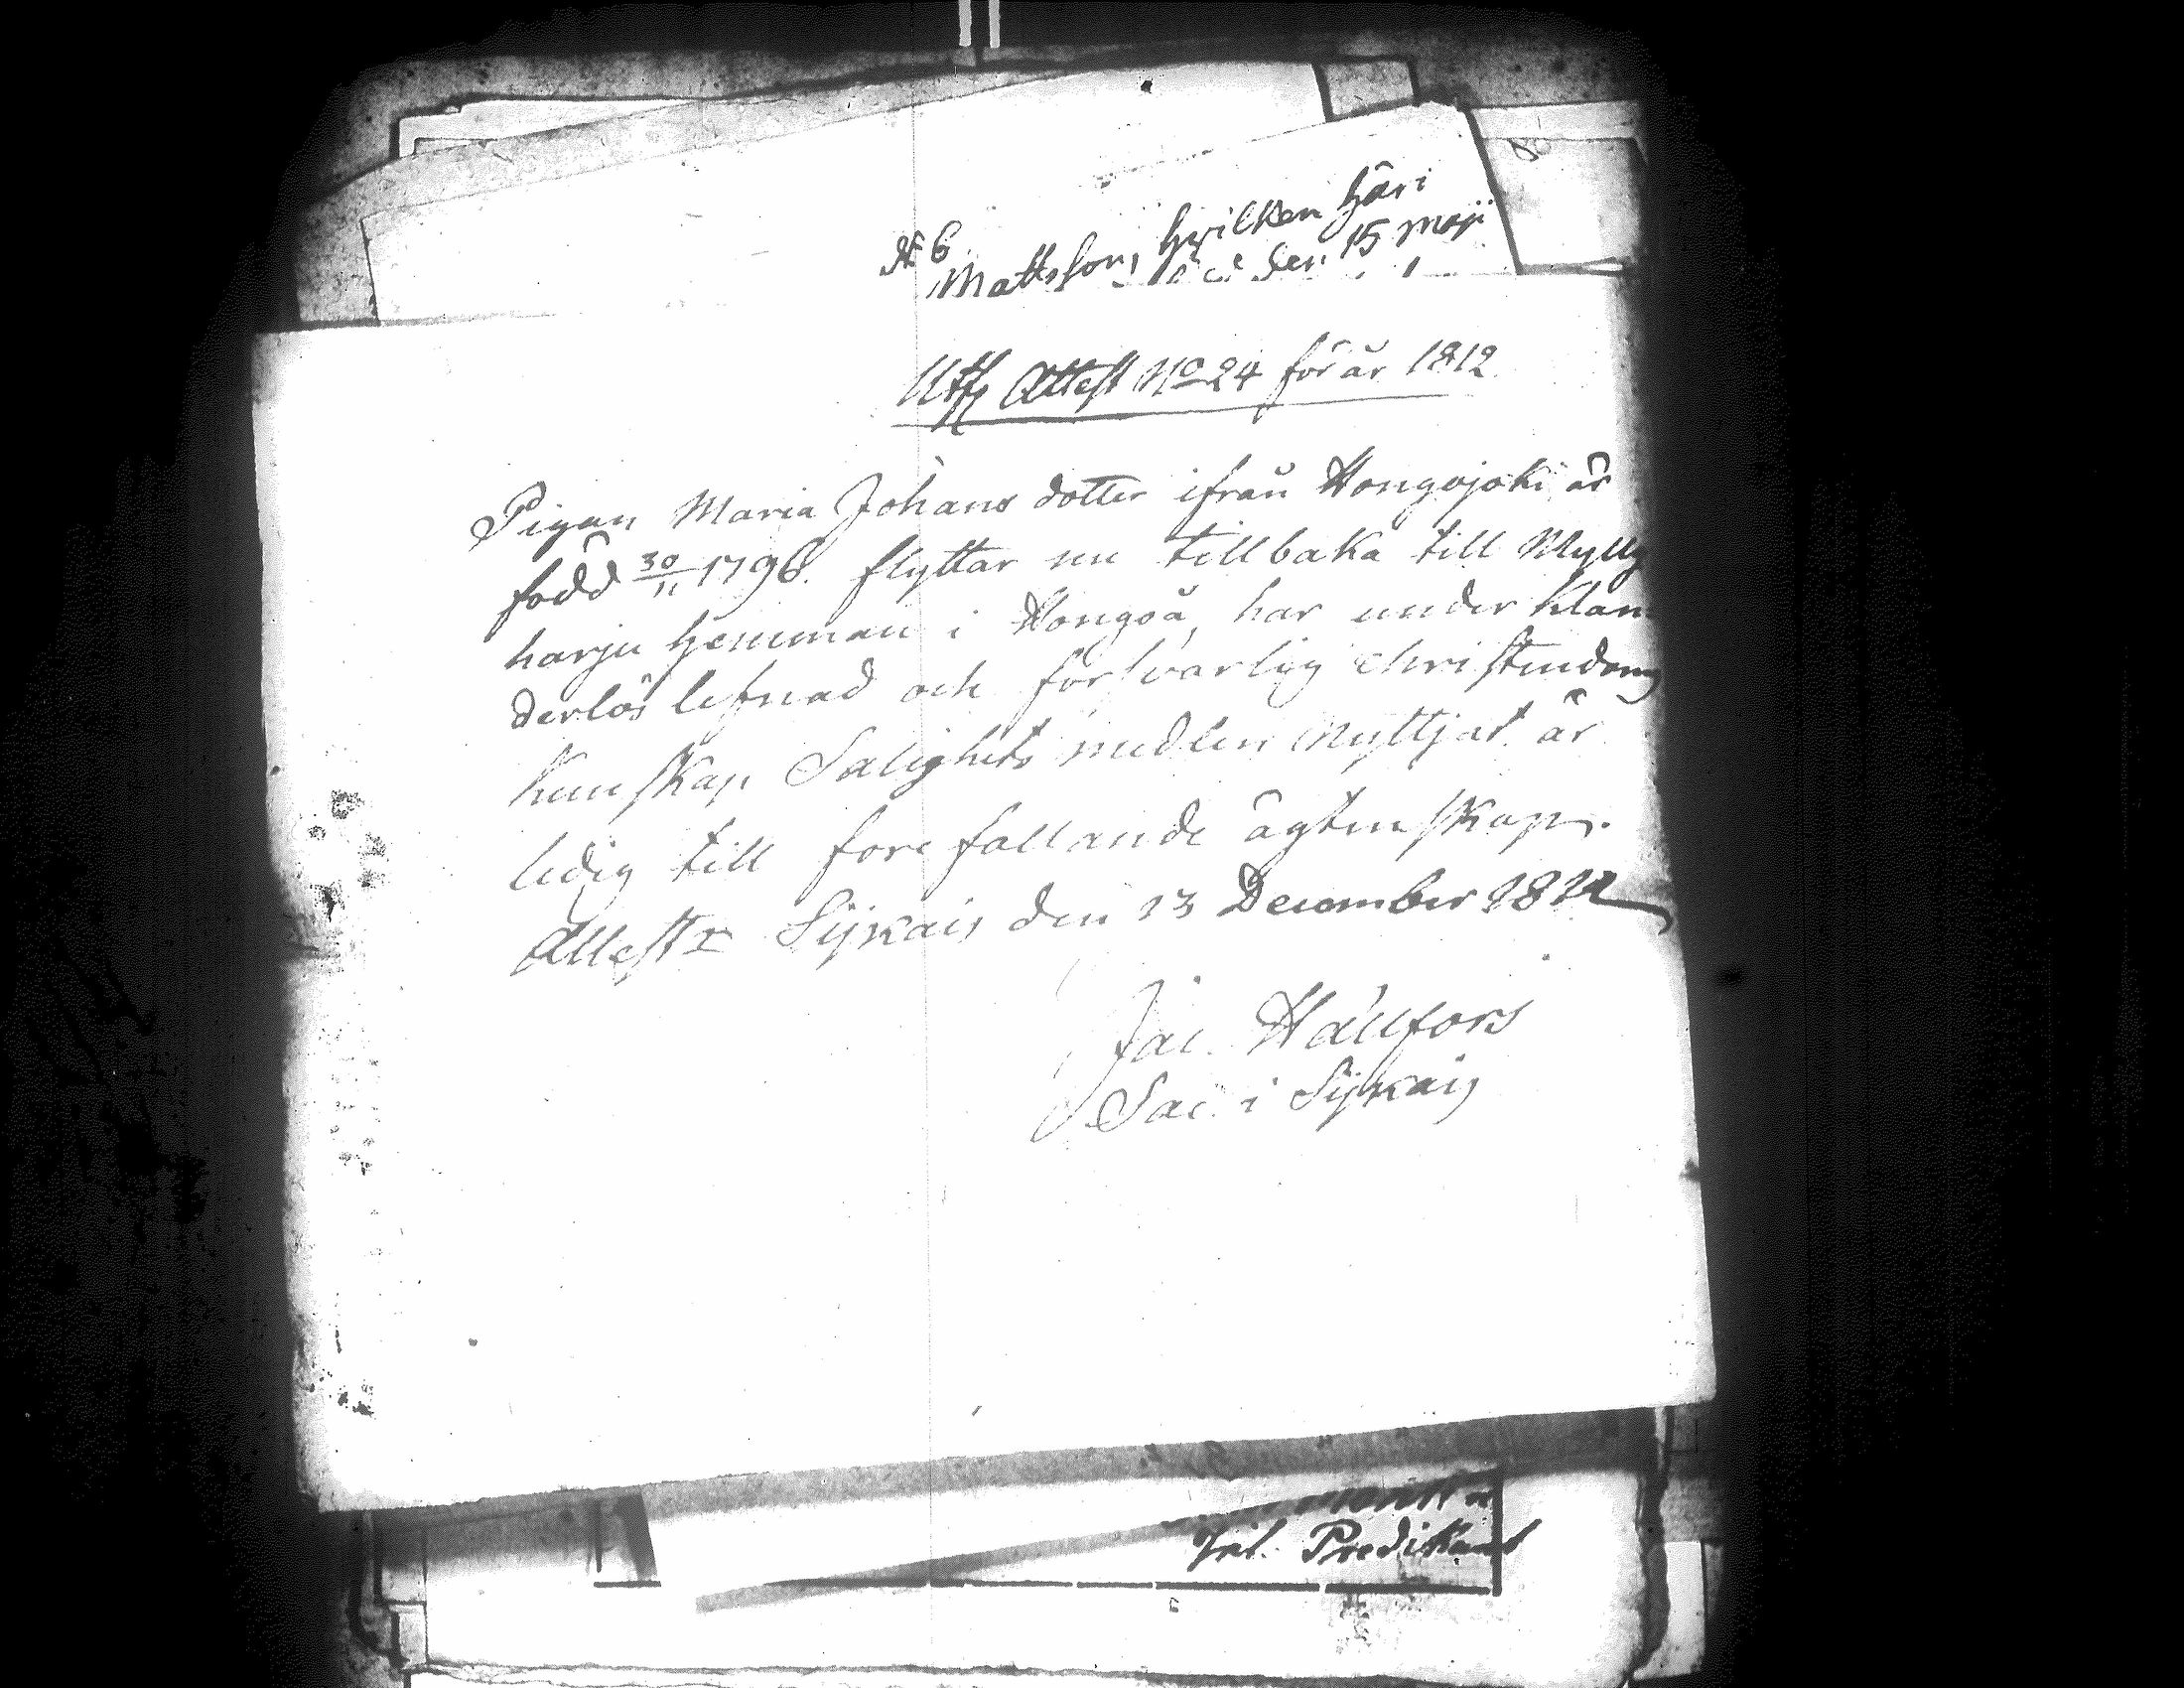 N: 6
Mattsson, hvilken häri
den 15 Maji
Utfl Attest No 24 för år 1812
Pigan Maria Johans dotter ifrån Hongojoki är
född 30/11 1796. flyttar nu tillbaka till Mylly
harju hemman i Hongoå, har under klan
derlös lefnad och försvarlig Christendoms
kunskap Salighets medlen Nyttjat, är
ledig till forefallande ägtenskap.
Attestr Sÿkais den 13 December 1812
Jac. Hällfors
Sac. i Sÿkais
Predikant